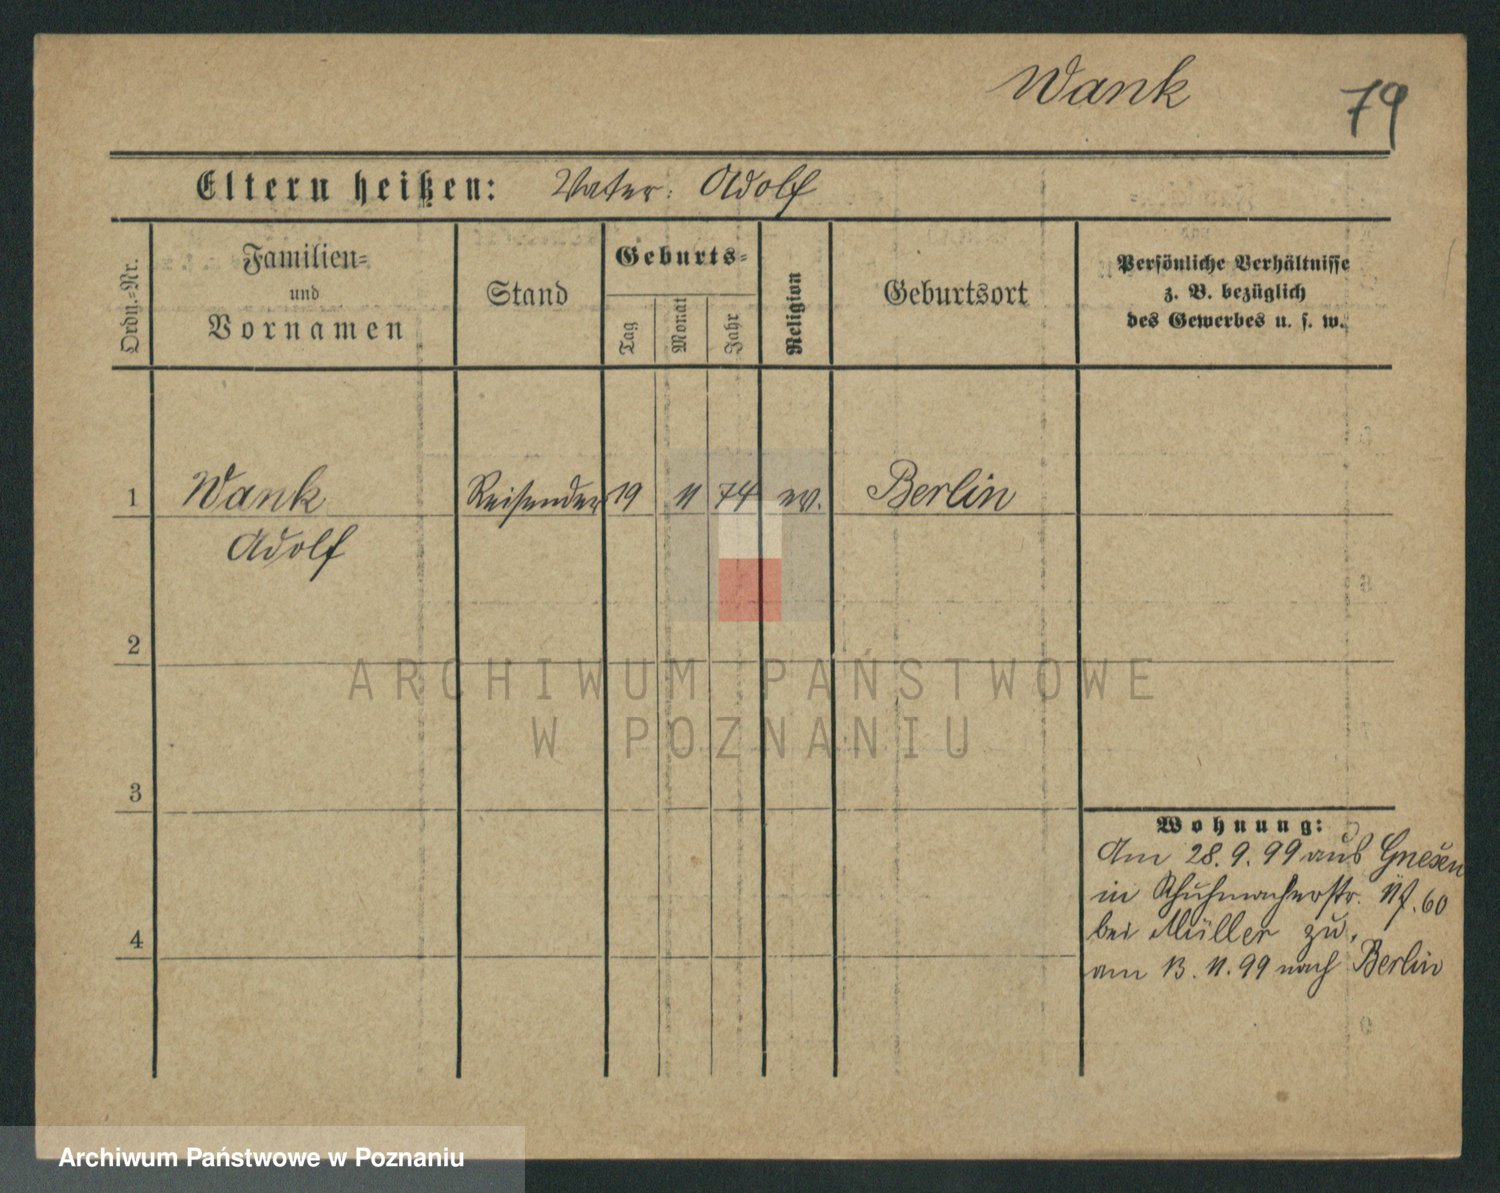 Wank
79
Eltern heißen: Vater: Adolf
Ordn.-Nr.
Familien-
und
Vornamen
Stand
Geburts-
Tag
Monat
Jahr
Religion
Geburtsort
Persönliche Verhältnisse
z. B. bezüglich
des Gewerbes u. s. w.
1 Wank Reisender 19 11 74 ev. Berlin
Adolf
2
3
4
Wohnung:
Am 28.9.99 aus Gnesen
in Schuhmacherstr. 60
bei Müller zu,
am 13.11.99 nach Berlin
ARCHIWUM PAŃSTWOWE
W POZNANIU
Archiwum Państwowe w Poznaniu